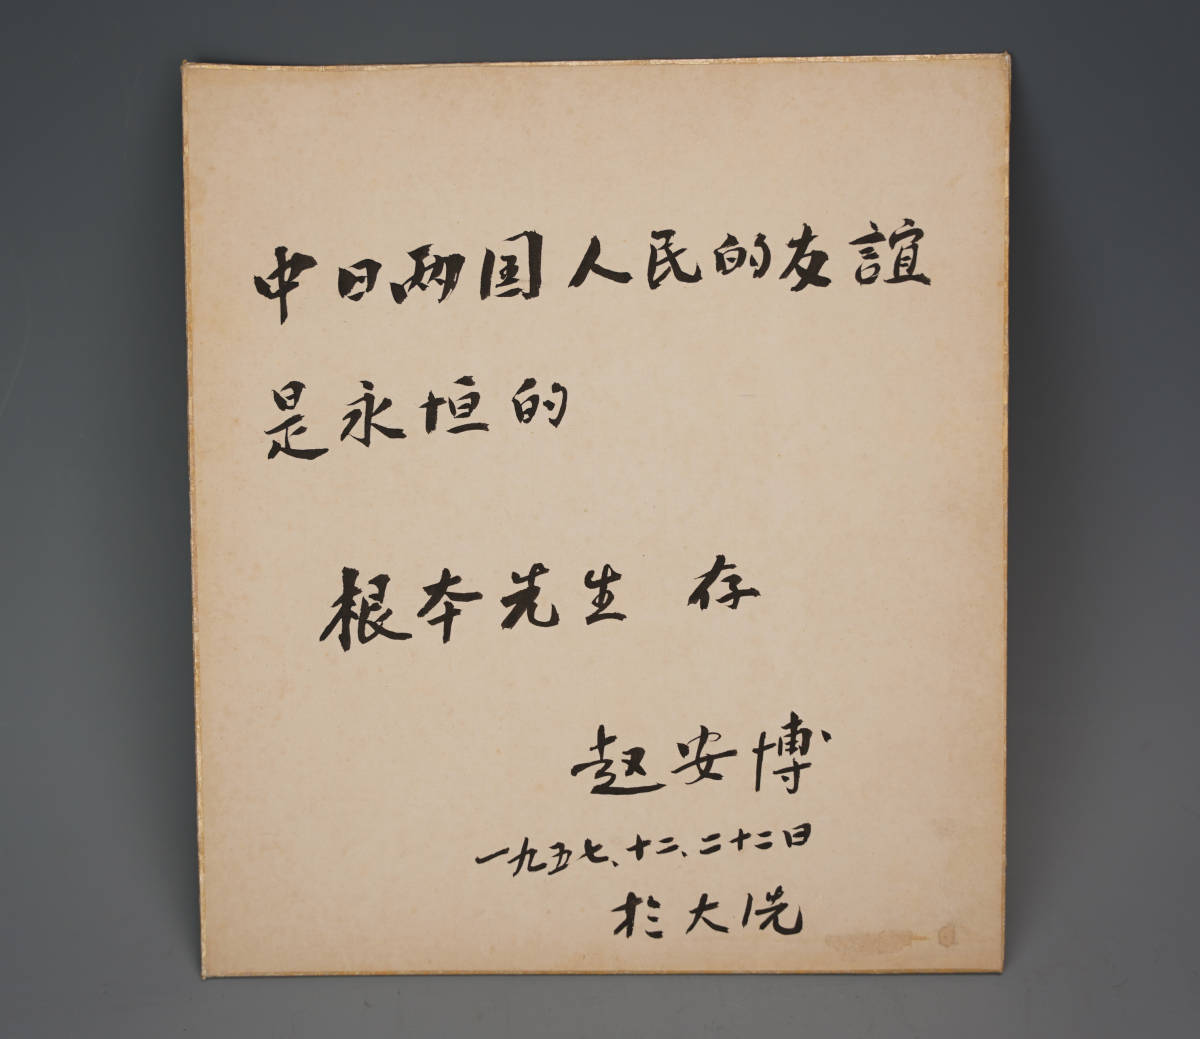 中日两国人民的友誼
是永恒的
根本先生 存
赵安博
一九五七、十二、二十二日
於大洗